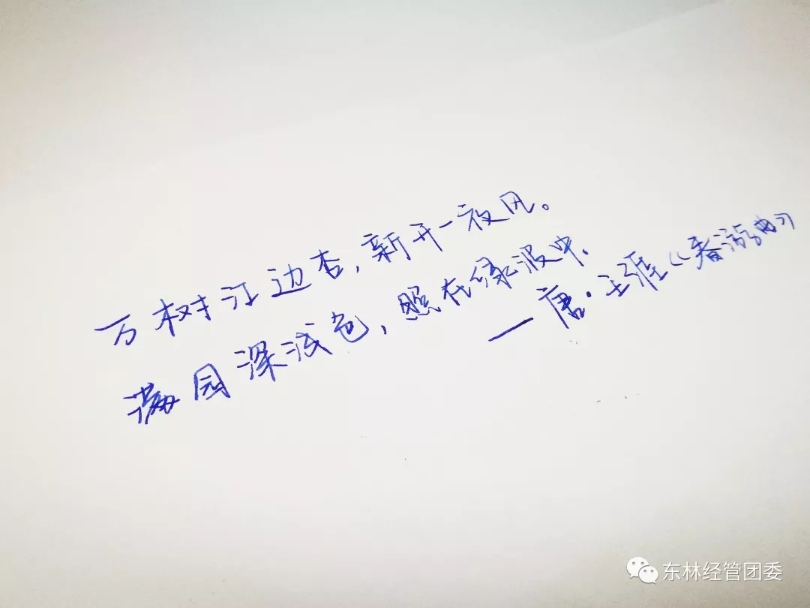 万树江边杏,新开一夜风。
满园深浅色,照在绿波中.
—唐·王涯《春游曲》
东林经管团委